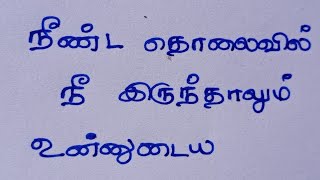 நீண்ட தொலைவில்
நீ இருந்தாலும்
உன்னுடைய